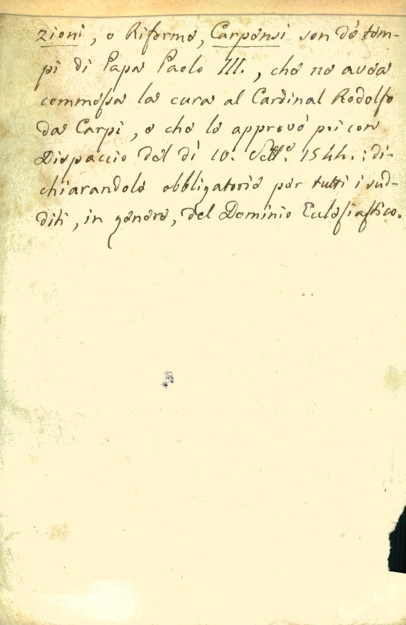 zioni, o Riforme, Carpensi son de' tem-
pi di Papa Paolo III., che ne avea
commessa la cura al Cardinal Rodolfo
da Carpi, e che le approvò poi con
Dispaccio del dì 10. Sett.e 1544.: di-
chiarandole obbligatorie per tutti i sud-
diti, in genere, del Dominio Eclesiastico.